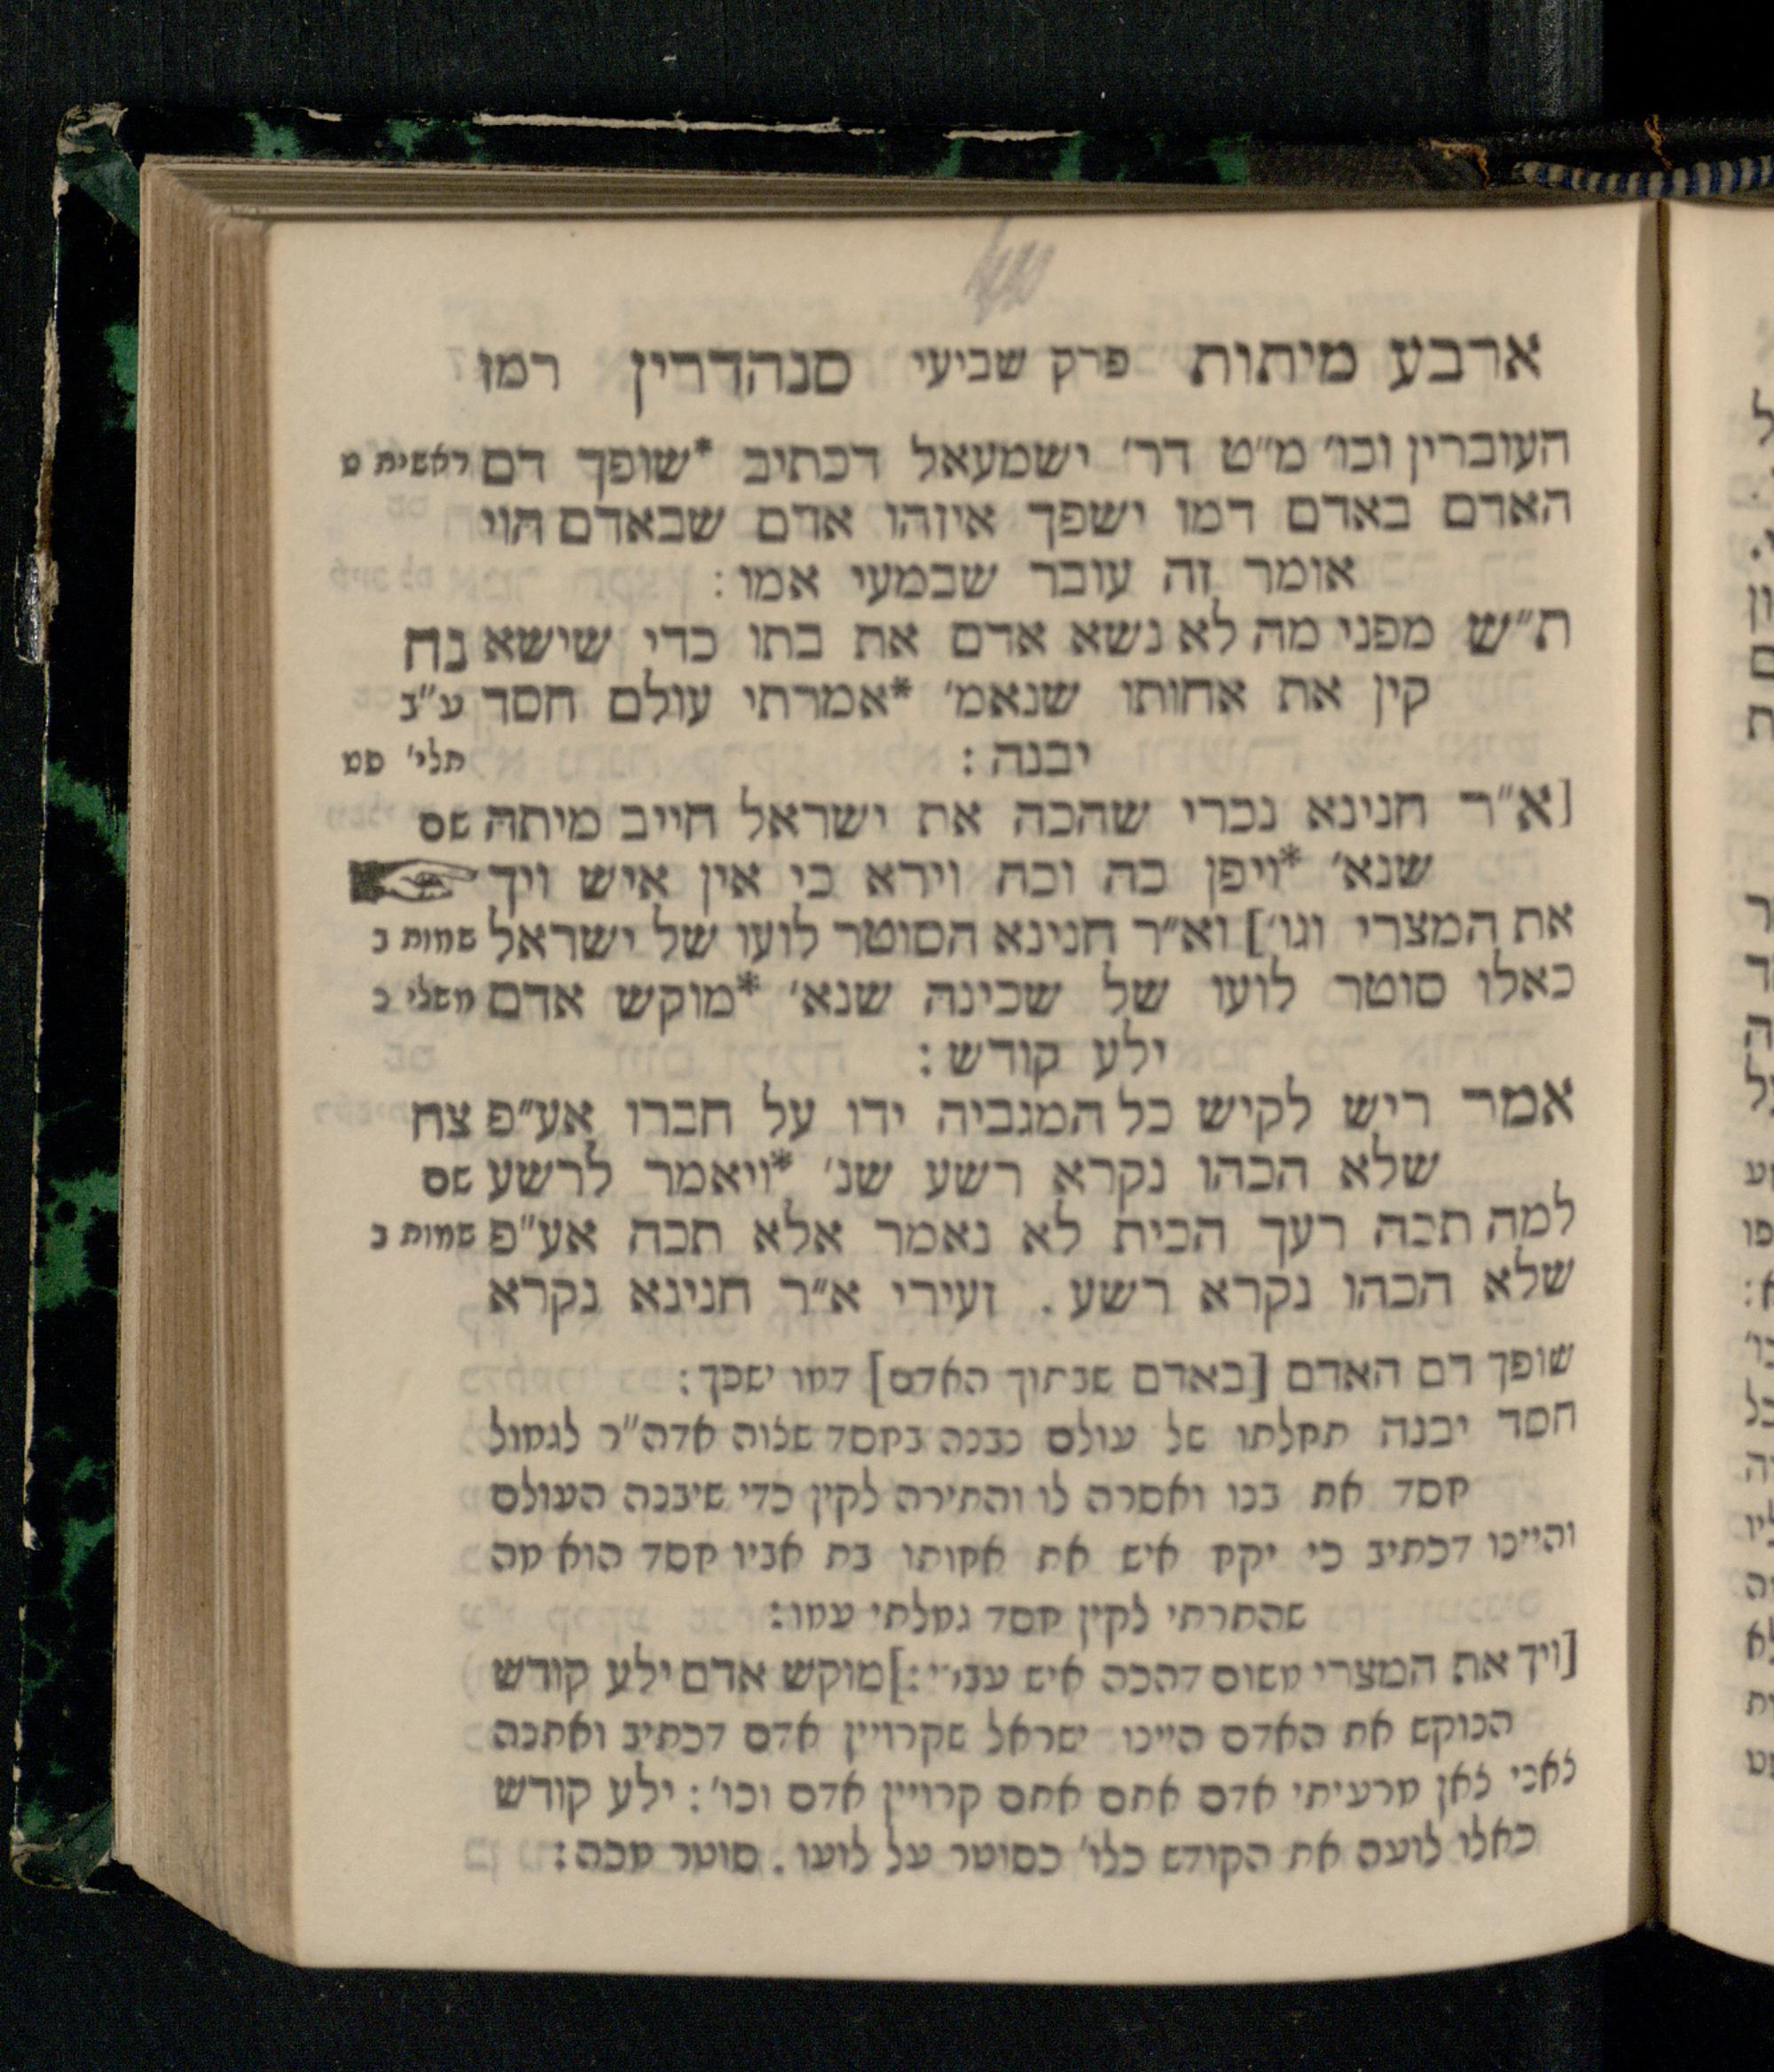 ארבע מיתות פרק שביעי סנהדרין רמז
העוברין וכו׳ מ״ט דר׳ ישמעאל דכתיב *שופך דם ראשית ט
האדם באדם דמו ישפך איזהו אדם שבאדם הוי
אומר זה עובר שבמעי אמו:
ת״ש מפני מה לא נשא אדם את בתו כדי שישא נח
קין את אחותו שנאמ׳ *אמרתי עולם חסד ע״ב
יבנה: תלי׳ פט
[א״ר חנינא נכרי שהכה את ישראל חייב מיתה שם
שנא׳ *ויפן כה וכה וירא כי אין איש ויך
את המצרי וגו׳] וא״ר חנינא הסוטר לועו של ישראל שמות ב
כאלו סוטר לועו של שכינה שנא׳ *מוקש אדם משלי כ
ילע קודש:
אמר ריש לקיש כל המגביה ידו על חברו אע״פ צח
שלא הכהו נקרא רשע שנ׳ *ויאמר לרשע שם
למה תכה רעך הכית לא נאמר אלא תכה אע״פ שמות ב
שלא הכהו נקרא רשע. זעירי א״ר חנינא נקרא
שופך דם האדם [באדם שבתוך האדם] דמו ישפך:
חסד יבנה תחלתו של עולם נבנה בחסד שלוה אדה״ר לגמול
חסד את בנו ואסרה לו והתירה לקין כדי שיבנה העולם
והיינו דכתיב כי יקח איש את אחותו בת אביו חסד הוא מה
שהתרתי לקין חסד גמלתי עמו:
[ויך את המצרי משום דהכה איש עברי:] מוקש אדם ילע קודש
הנוקש את האדם היינו ישראל שקרויין אדם דכתיב ואתנה
צאני צאן מרעיתי אדם אתם אתם קרויין אדם וכו׳: ילע קודש
כאלו לועה את הקודש כלו׳ כסוטר על לועו. סוטר מכה: